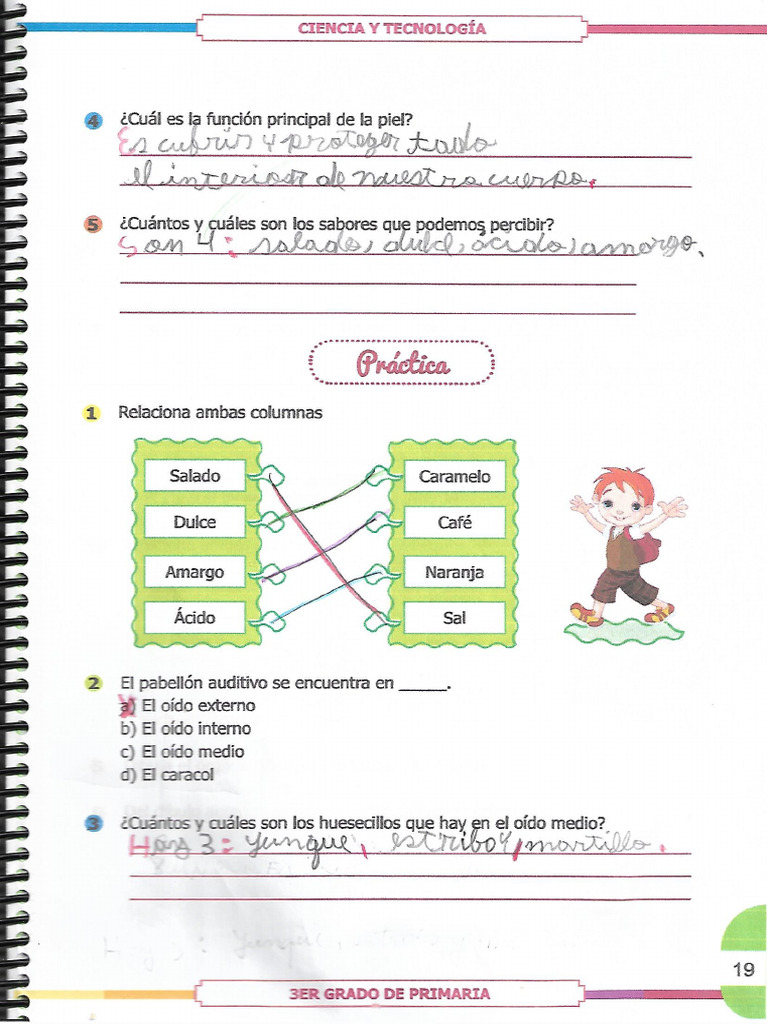 CIENCIA Y TECNOLOGÍA
4 ¿Cuál es la función principal de la piel?
Es cubrir y proteger todo
el interior de nuestro cuerpo.
5 ¿Cuántos y cuáles son los sabores que podemos percibir?
Son 4: salado, dulce, ácido, amargo.
Práctica
1 Relaciona ambas columnas
Salado Caramelo
Dulce Café
Amargo Naranja
Ácido Sal
2 El pabellón auditivo se encuentra en _____.
a) El oído externo
b) El oído interno
c) El oído medio
d) El caracol
3 ¿Cuántos y cuáles son los huesecillos que hay en el oído medio?
Hay 3: Yunque, estribo y martillo.
19
3ER GRADO DE PRIMARIA